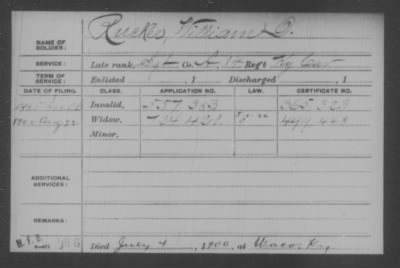 NAME OF SOLDIER: Ruckes, William D.
SERVICE: Late rank, Sgt Co. A, Reg't Ky Cav
TERM OF SERVICE: Enlisted , 1 Discharged , 1
DATE OF FILING. CLASS. APPLICATION NO. LAW. CERTIFICATE NO.
Invalid, 557.383 365.323
Widow,
Minor,
ADDITIONAL SERVICES:
REMARKS:
Died July 4, 1900, at Waco, Ky